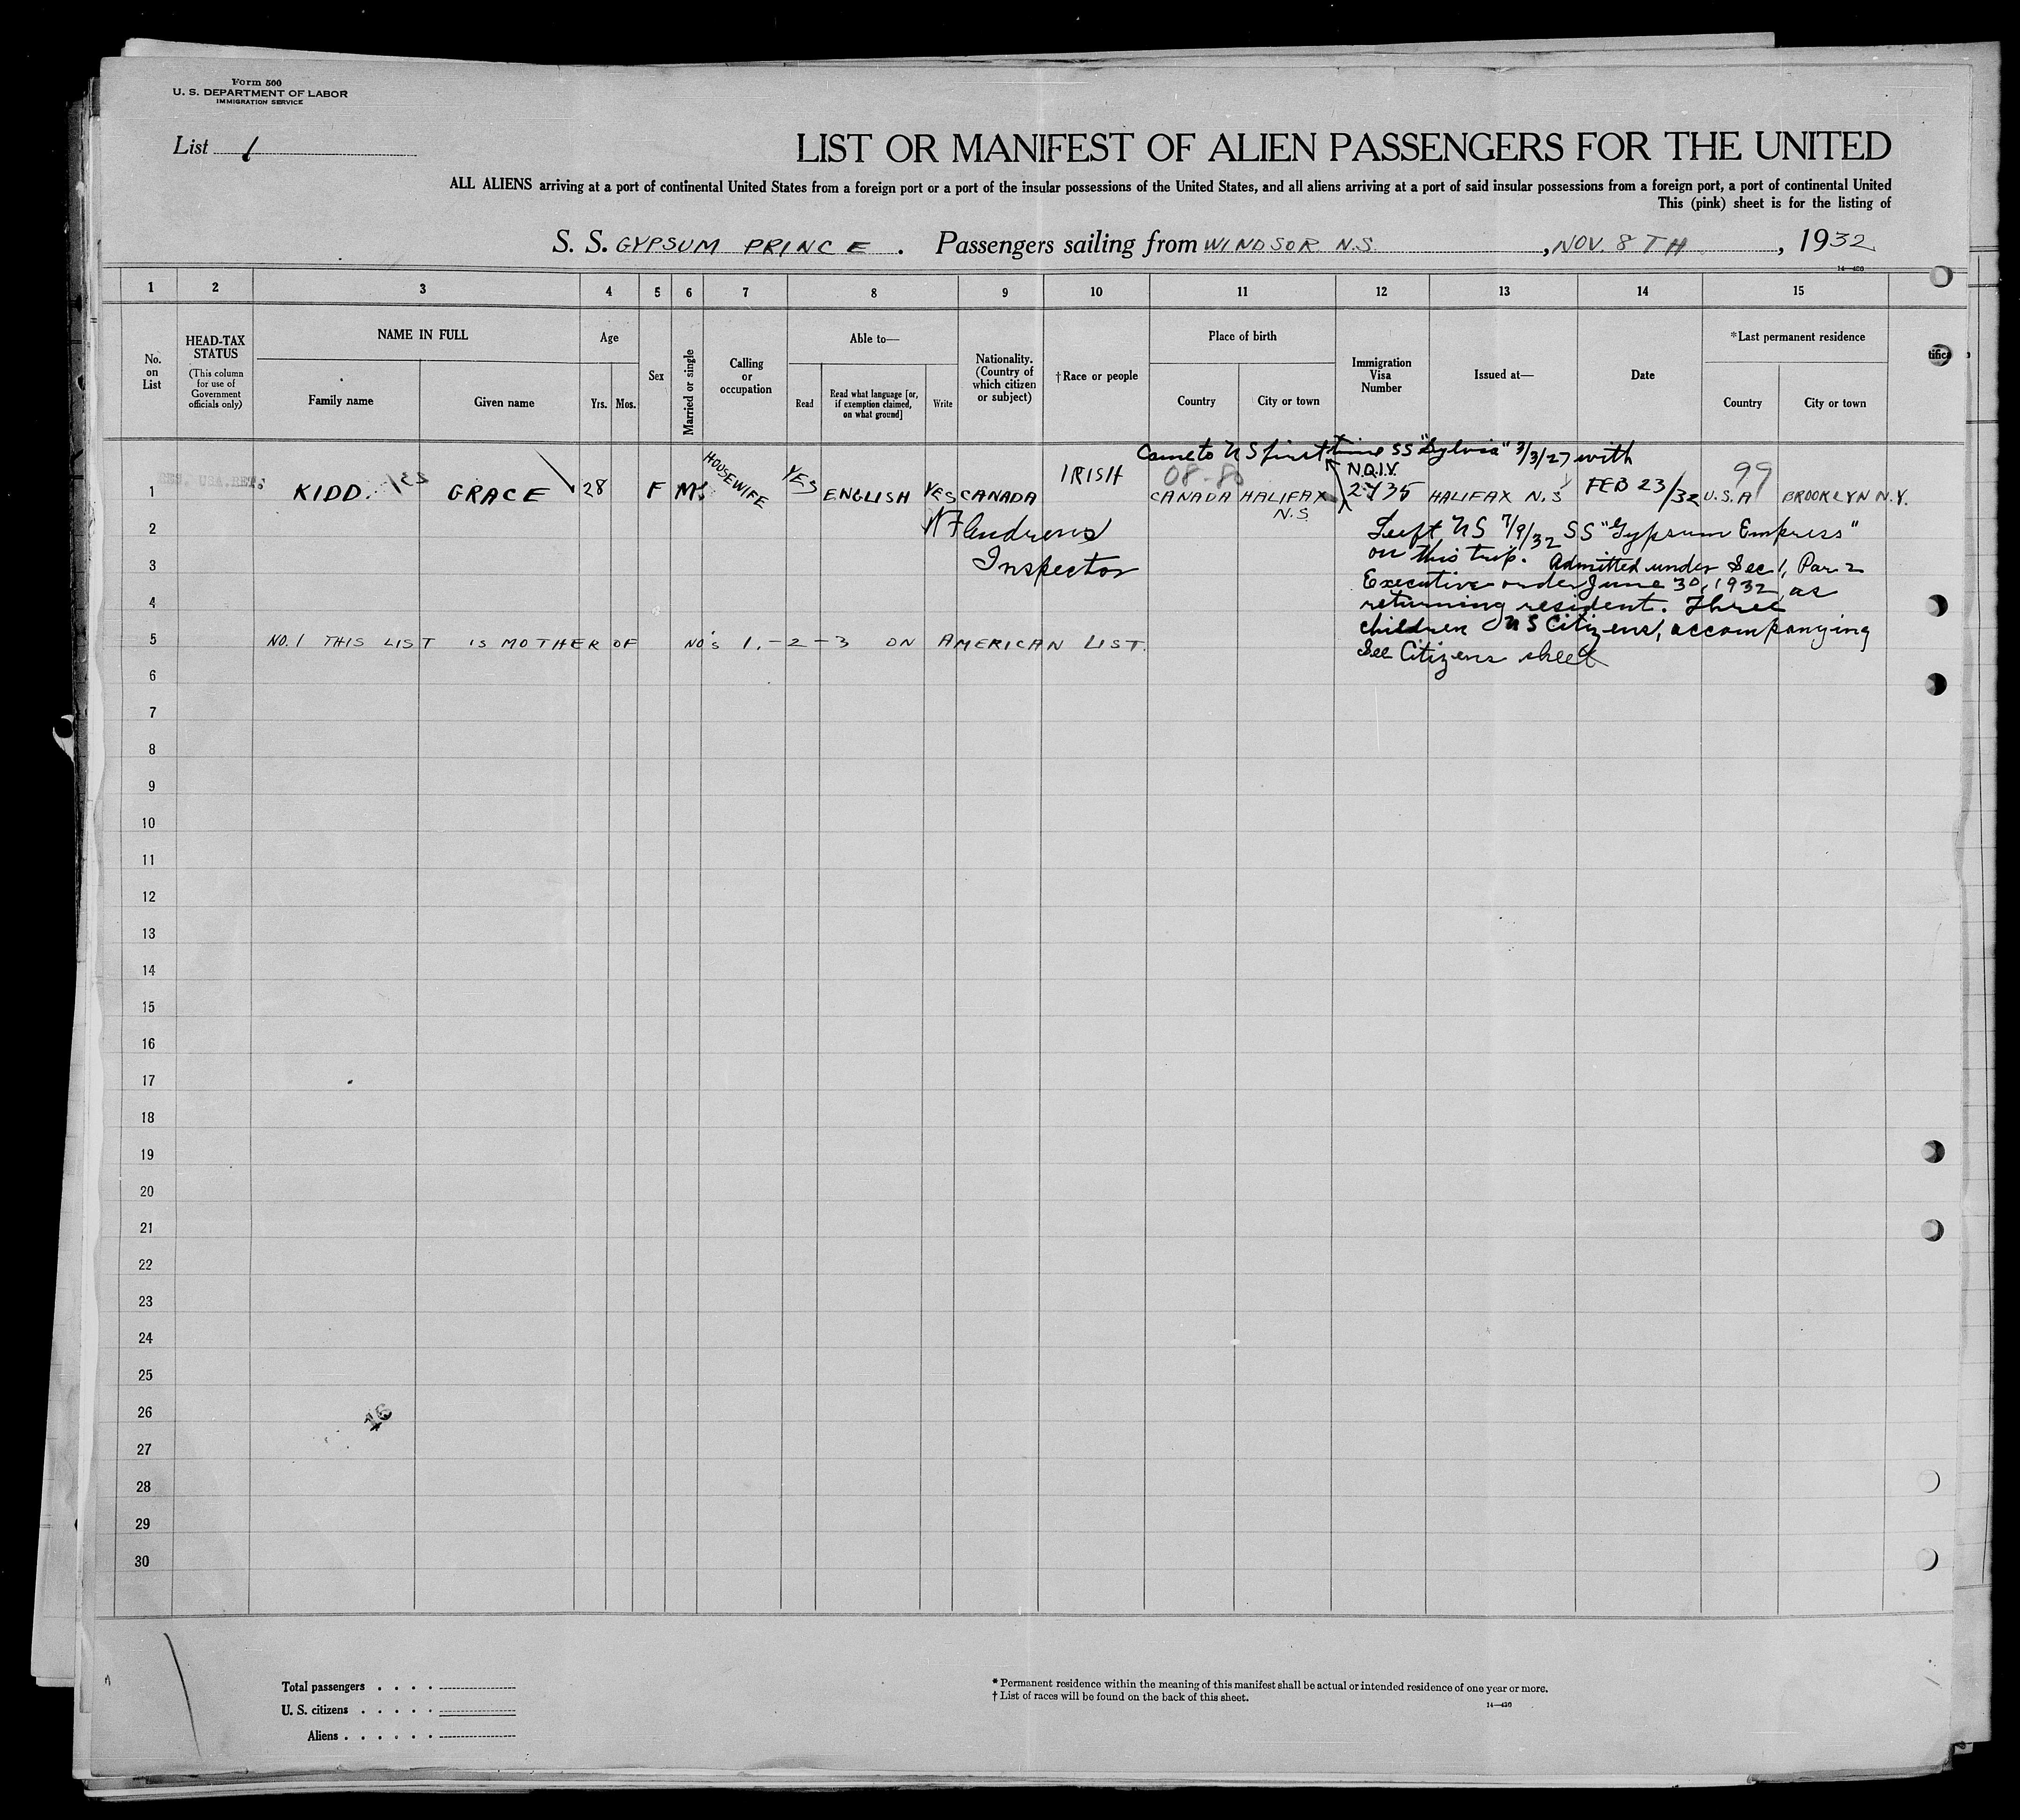 Form 500
U. S. DEPARTMENT OF LABOR
IMMIGRATION SERVICE
List 1
LIST OR MANIFEST OF ALIEN PASSENGERS FOR THE UNITED
ALL ALIENS arriving at a port of continental United States from a foreign port or a port of the insular possessions of the United States, and all aliens arriving at a port of said insular possessions from a foreign port, a port of continental United
This (pink) sheet is for the listing of
S. S. GYPSUM PRINCE. Passengers sailing from WINDSOR N.S., NOV. 8TH, 1932
14—420
1 2 3 4 5 6 7 8 9 10 11 12 13 14 15
No. on List
HEAD-TAX STATUS
(This column for use of Government officials only)
NAME IN FULL
Family name
Given name
Age
Yrs. Mos.
Sex
Married or single
Calling or occupation
Able to—
Read
Read what language [or, if exemption claimed, on what ground]
Write
Nationality. (Country of which citizen or subject)
†Race or people
Place of birth
Country
City or town
Immigration Visa Number
Issued at—
Date
*Last permanent residence
Country
City or town
tifica
Came to US first time SS "Sylvia" 3/3/27 with
1 KIDD. GRACE 28 F M HOUSEWIFE YES ENGLISH YES CANADA IRISH 08-80 CANADA HALIFAX N.S. N.Q.I.V. 2735 HALIFAX N.S FEB 23/32 99 U.S.A BROOKLYN N.Y.
Left US 7/9/32 SS "Gypsum Empress"
on this trip. Admitted under Sec 1, Par 2
Executive order June 30, 1932, as
returning resident. Three
children US Citizens, accompanying
See Citizens sheet
Andrews
Inspector
2
3
4
5 NO. 1 THIS LIST IS MOTHER OF NO'S 1.-2-3 ON AMERICAN LIST.
6
7
8
9
10
11
12
13
14
15
16
17
18
19
20
21
22
23
24
25
26
16
27
28
29
30
Total passengers
U. S. citizens
Aliens
* Permanent residence within the meaning of this manifest shall be actual or intended residence of one year or more.
† List of races will be found on the back of this sheet.
14—420